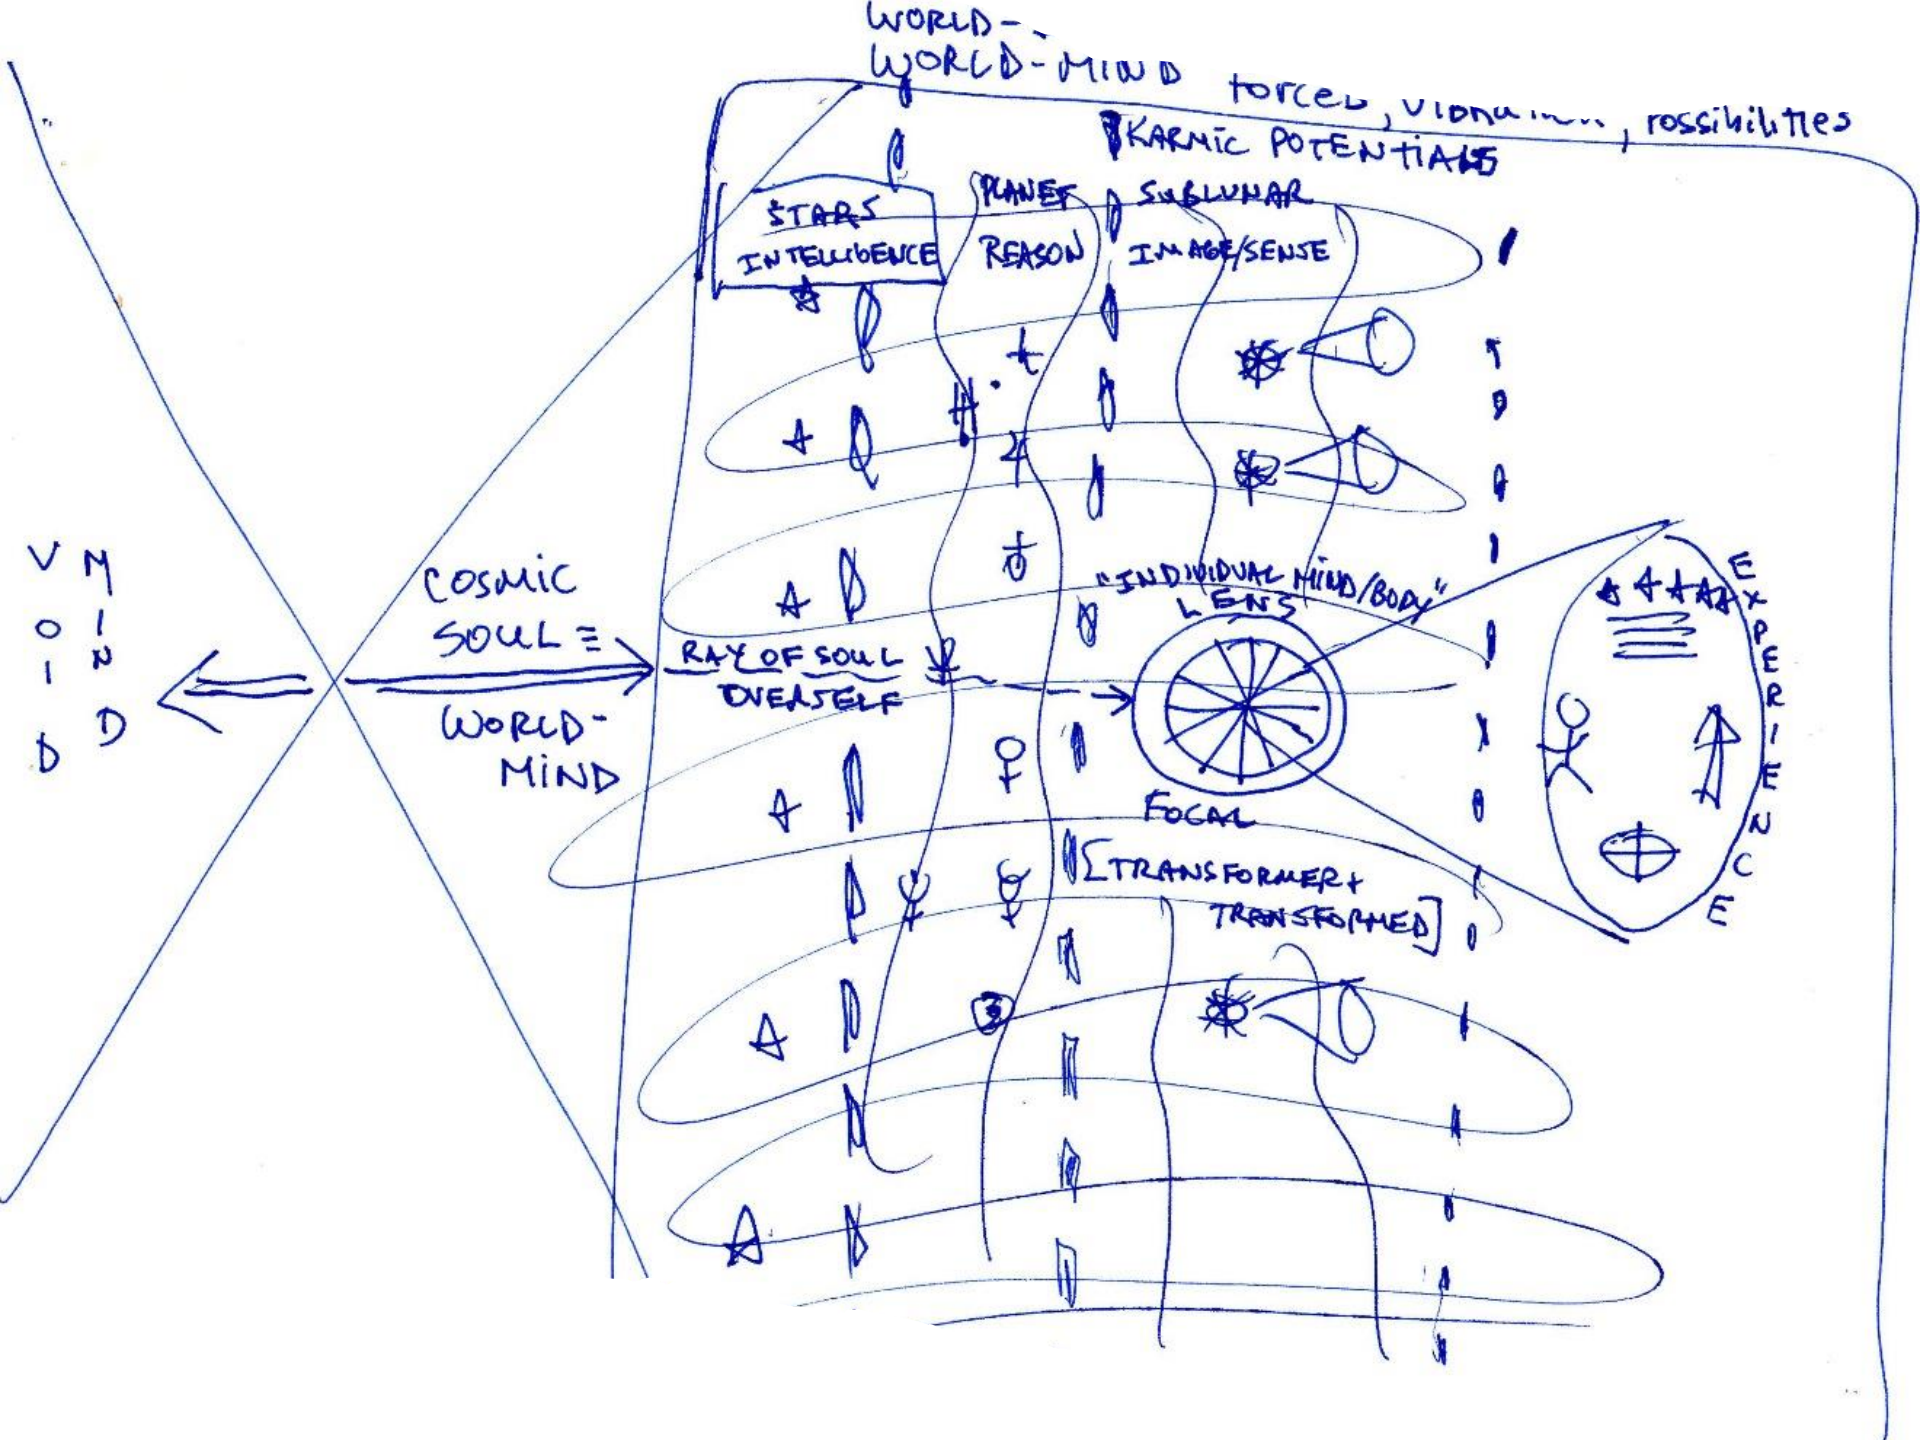 WORLD-
WORLD-MIND forces, vibration, possibilities
KARMIC POTENTIALS
STARS
INTELLIGENCE
PLANET
REASON
SUBLUNAR
IMAGE/SENSE
VOID
MIND
COSMIC
SOUL ≡
WORLD-
MIND
RAY OF SOUL
OVERSELF
"INDIVIDUAL MIND/BODY"
LENS
FOCAL
[TRANSFORMER+
TRANSFORMED]
EXPERIENCE